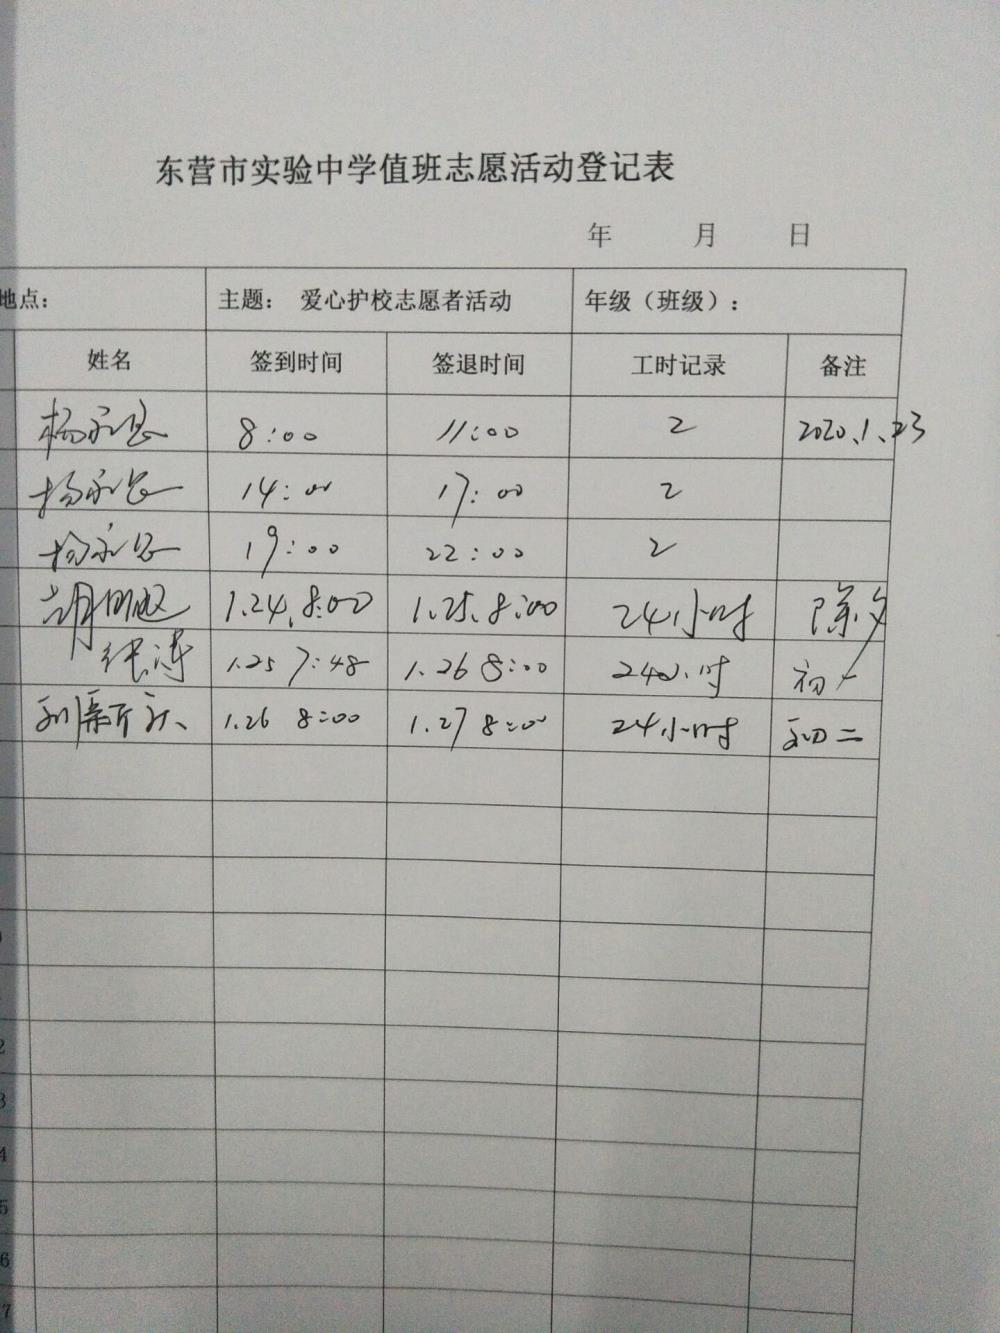 东营市实验中学值班志愿活动登记表
年 月 日
地点： 主题： 爱心护校志愿者活动 年级（班级）：
姓名 签到时间 签退时间 工时记录 备注
8:00 11:00 2 2020.1.23
14:00 17:00 2
19:00 22:00 2
1.24.8:00 1.25.8:00 24小时 除夕
张涛 1.25 7:48 1.26 8:00 24小时 初一
刘新 1.26 8:00 1.27 8:00 24小时 初二
2
3
4
5
6
7